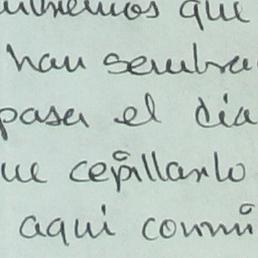 que
han sembra
pasa el dia
ue cepillarlo
aqui comuni